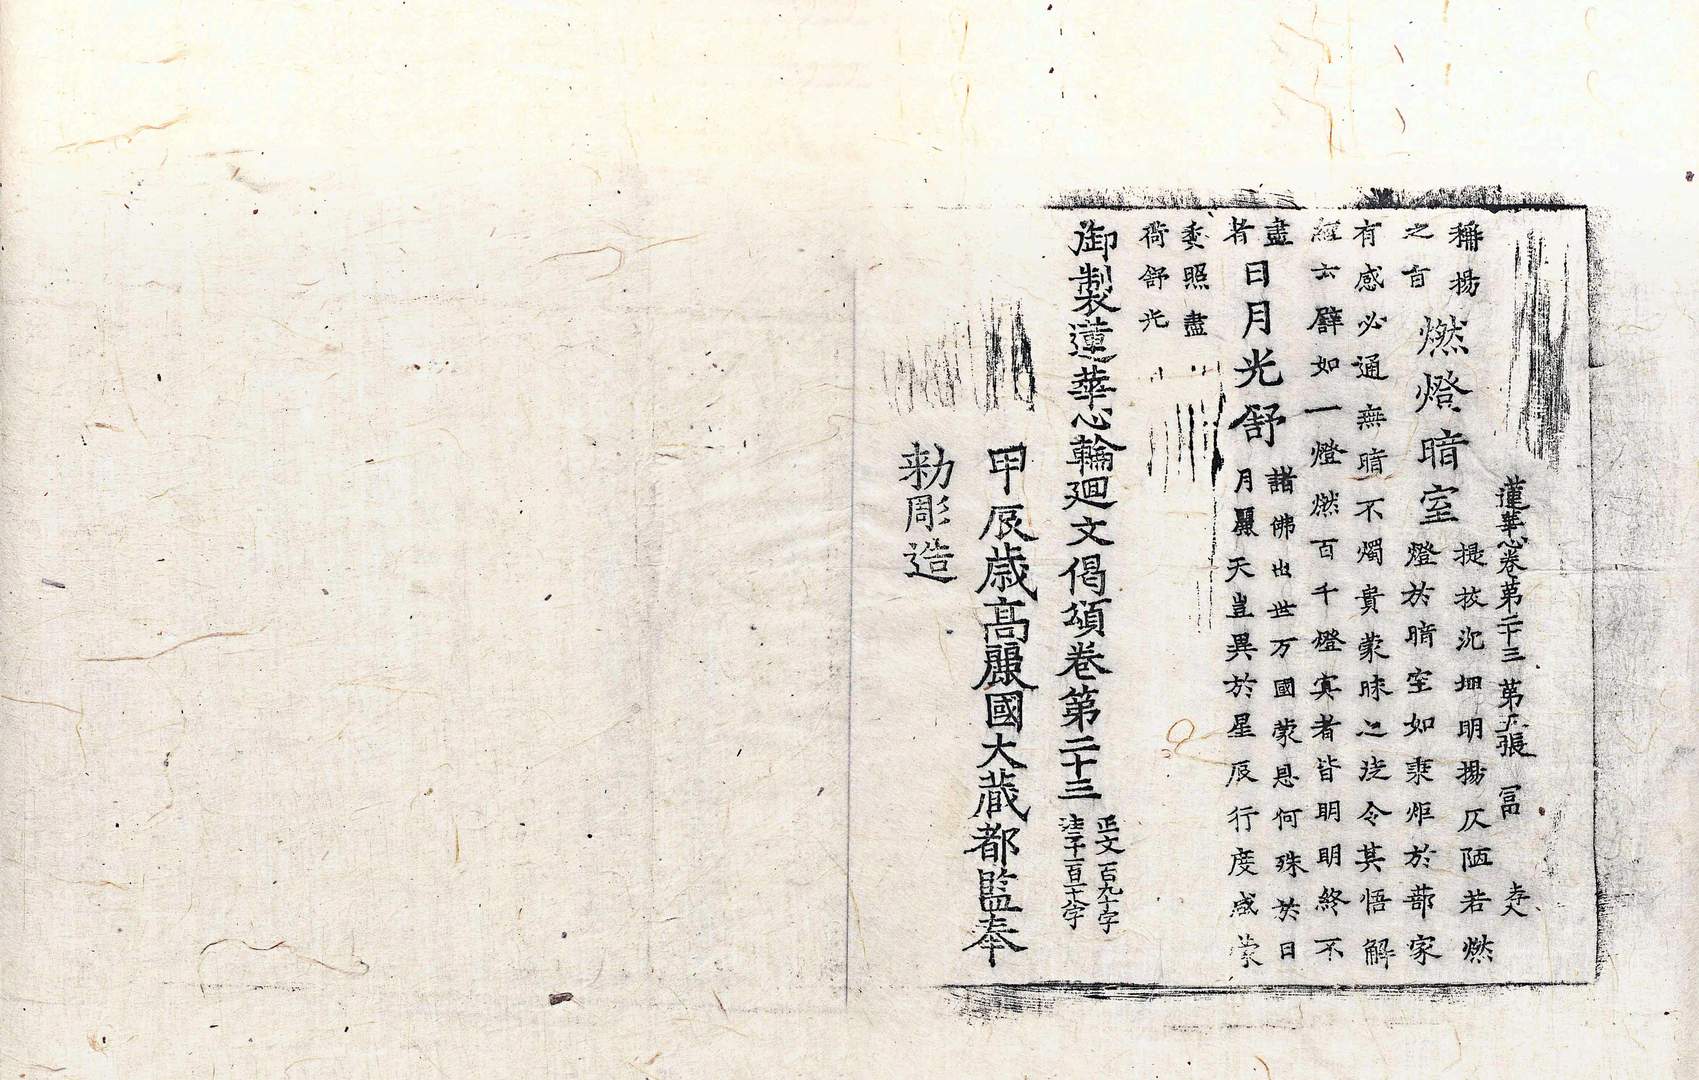 蓮華心卷第二十三 第五張 冨
稱揚 提扙沉 明揚仄陋若燃
之盲 燃燈暗室 燈於暗室如秉炬於蔀家
有感必通無暗不燭貴蒙昧之途令其悟解
經云譬如一燈燃百千燈冥者皆明明終不
盡 諸佛出世万國蒙恩何殊於日
者 日月光舒 月麗天豈異於星辰行度咸蒙
委照盡
衙舒光
御製蓮華心輪廻文偈頌卷第二十三 正文百九十字
注二千一百一十八字
甲辰歳高麗國大藏都監奉
勑彫造